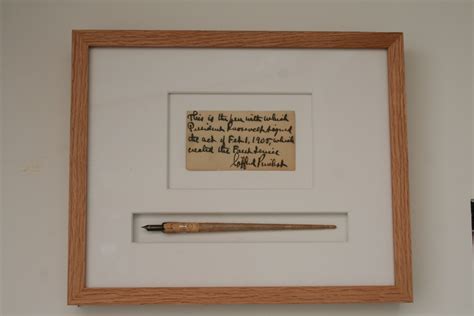 This is the pen with which
President Roosevelt signed
the act of Feb. 1, 1905, which
created the Forest Service
Gifford Pinchot